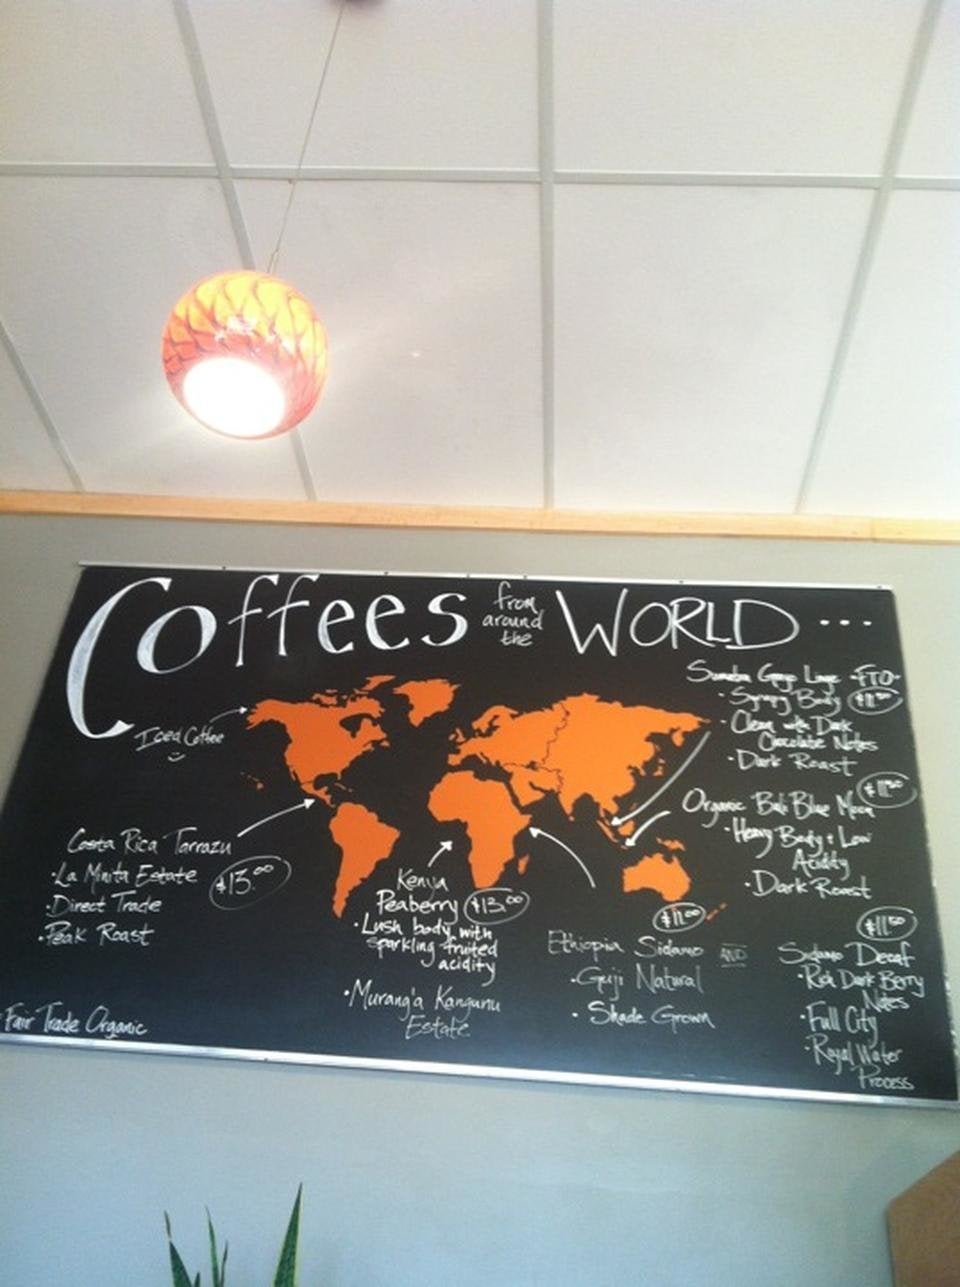 Coffees from around the WORLD...
Iced Coffee
Costa Rica Tarrazu
$13.00
·La Minita Estate
·Direct Trade
·Peak Roast
Fair Trade Organic
Kenya
Peaberry $13.00
·Lush body with
sparkling fruited
acidity
·Murang'a Kangunu
Estate
$11.00
Ethiopia Sidamo AND
·Guji Natural
·Shade Grown
Sumatra Gayo -FTO-
·Syrupy Body
·Clean with Dark
Chocolate Notes
·Dark Roast
Organic Bali Blue Moon
·Heavy Body & Low
Acidity
·Dark Roast
$11.50
Sidamo Decaf
·Rich Dark Berry
Notes
·Full City
·Royal Water
Process